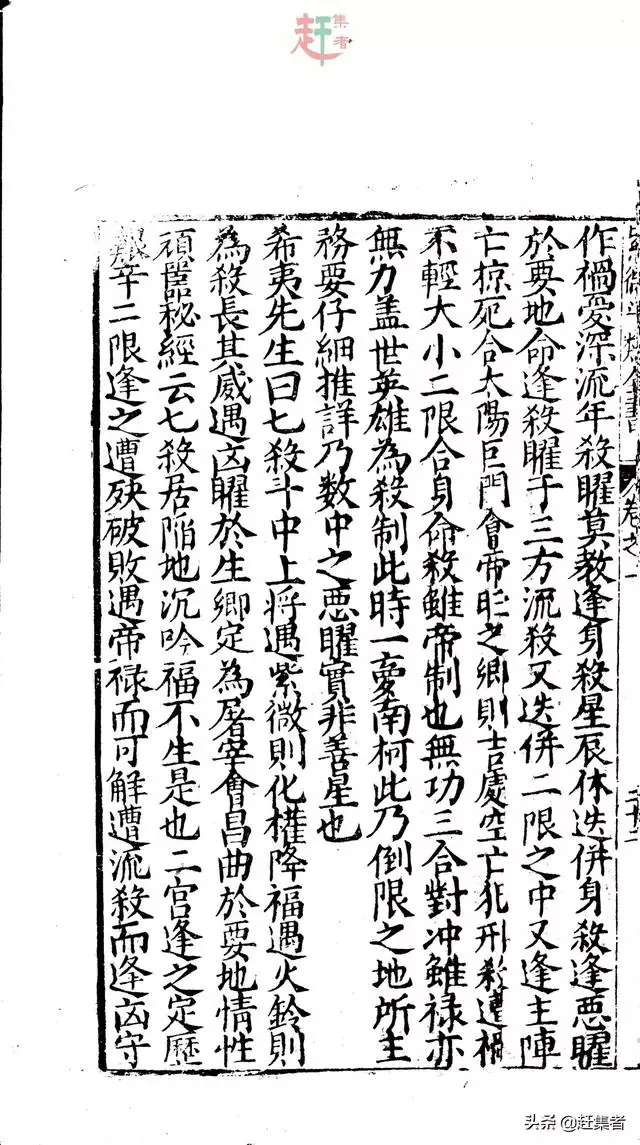 赶集者
作禍愛深流年殺曜莫教逢身殺星辰休迭併身殺逢惡曜
於要地命逢殺曜于三方流殺又迭併二限之中又逢主陣
亡掠死合太陽巨門會帝旺之鄉則吉處空亡犯刑殺遭禍
不輕大小二限合身命殺雖帝制也無功三合對冲雖禄亦
無力盖世英雄為殺制此時一夣南柯此乃倒限之地所主
務要仔細推詳乃数中之惡曜實非善星也
希夷先生曰七殺斗中上將遇紫微則化權降福遇火鈴則
為殺長其威遇凶曜於生鄉定為屠宰會昌曲於要地情性
頑嚚秘經云七殺居陷地沉吟福不生是也二宮逢之定歷
艱辛二限逢之遭殃破敗遇帝禄而可解遭流殺而逢凶守
卷之一
二十二
头条@赶集者